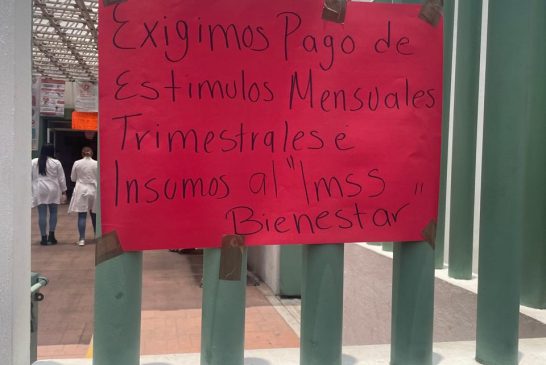 Exigimos Pago de
Estimulos Mensuales
Trimestrales e
Insumos al "Imss
Bienestar"